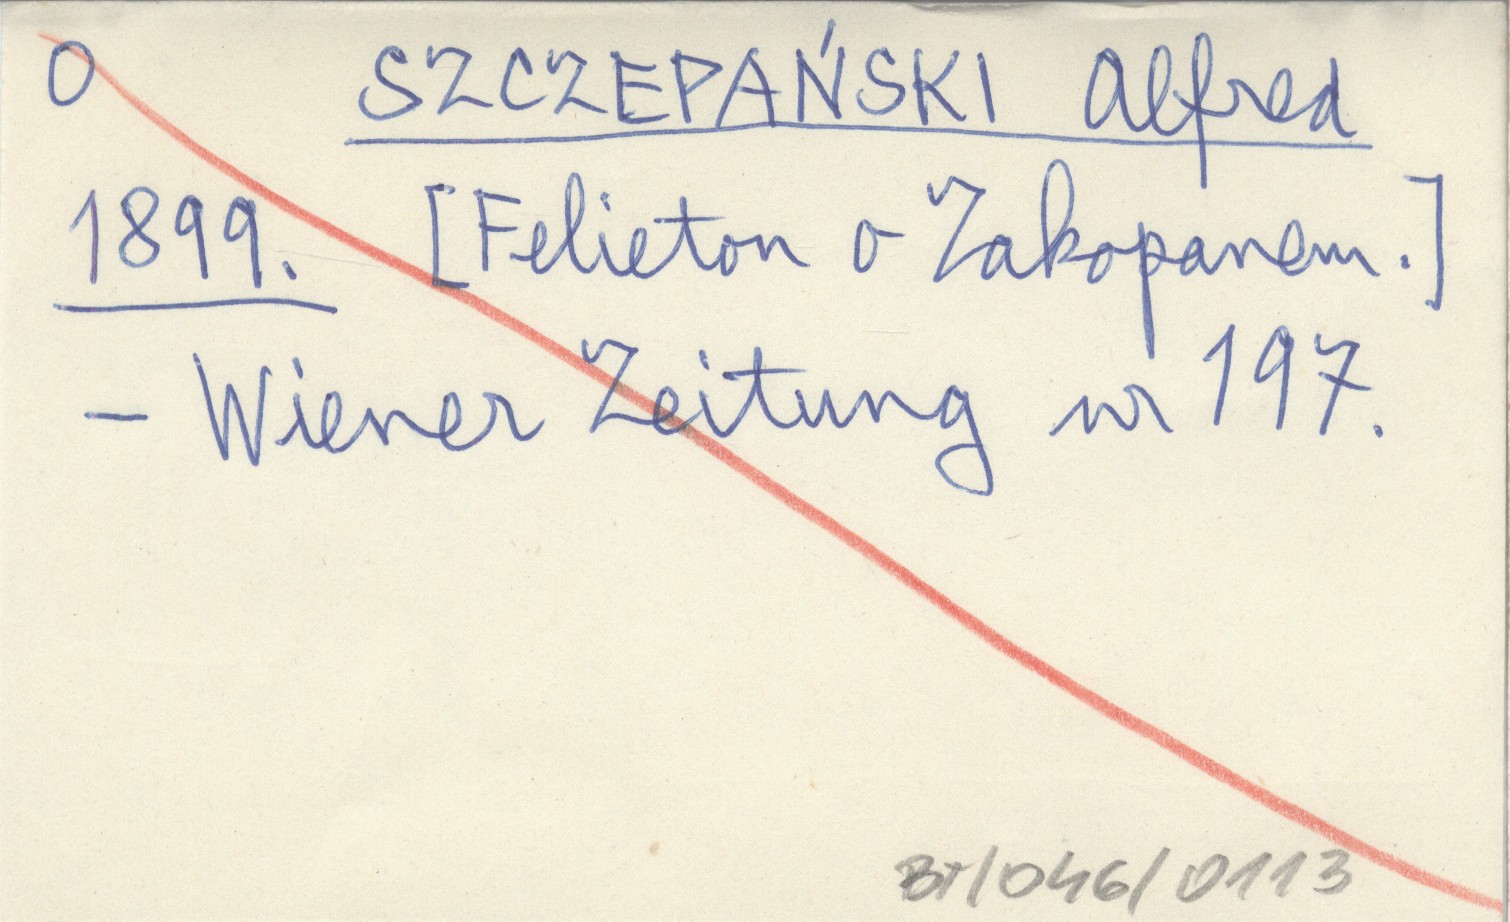 O SZCZEPAŃSKI Alfred
1899. [Felieton o Zakopanem.]
– Wiener Zeitung nr 197.
BT/046/0113